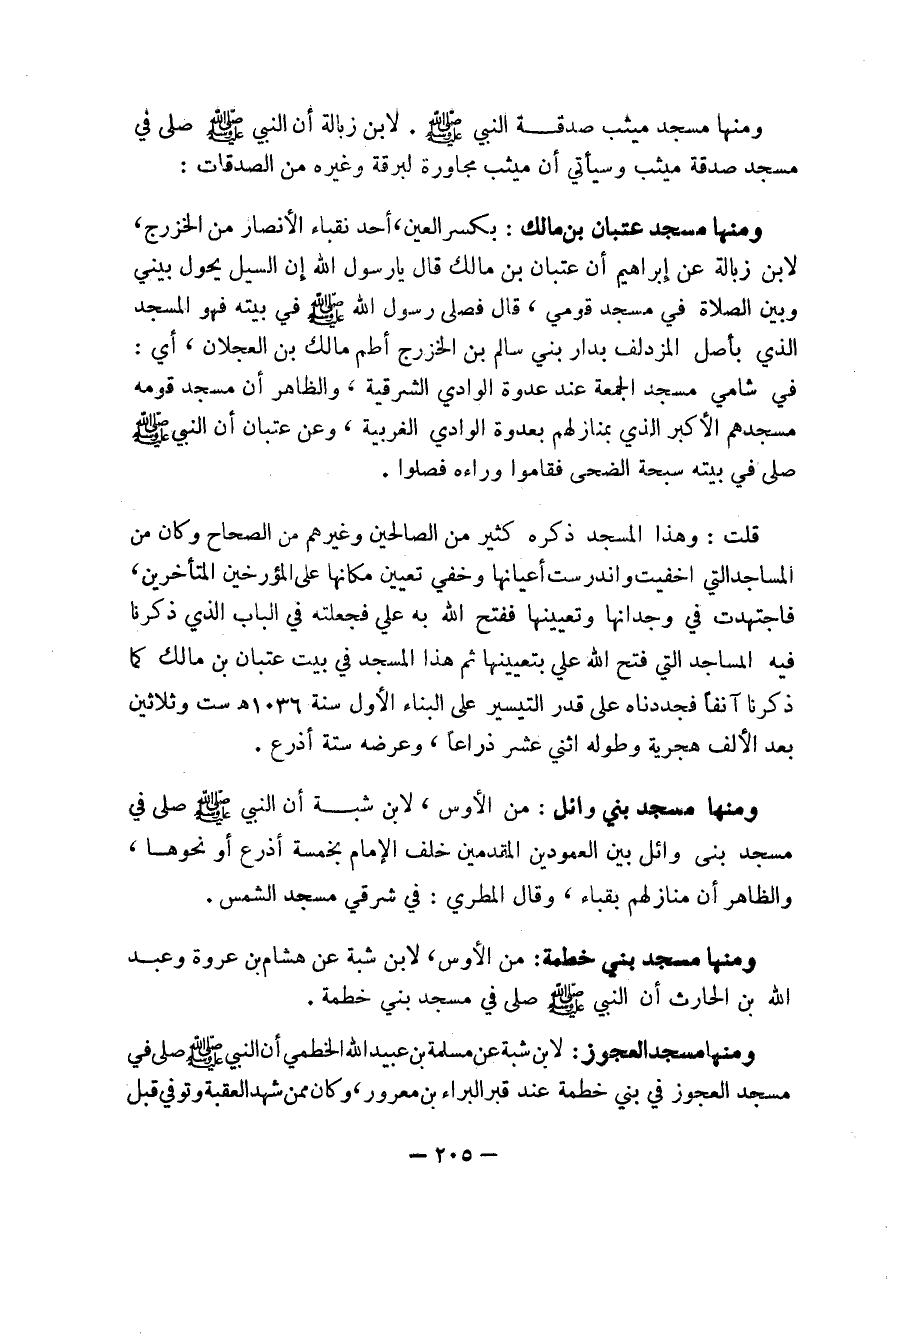 ومنها مسجد ميثب صدقة النبي ﷺ . لابن زبالة أن النبي ﷺ صلى في
مسجد صدقة ميثب وسيأتي أن ميثب مجاورة لبرقة وغيره من الصدقات :
ومنها مسجد عتبان بن مالك : بكسر العين ، أحد نقباء الأنصار من الخزرج ،
لابن زبالة عن إبراهيم أن عتبان بن مالك قال يارسول الله إن السيل يحول بيني
وبين الصلاة في مسجد قومي ، قال فصلى رسول الله ﷺ في بيته فهو المسجد
الذي بأصل المزدلف بدار بني سالم بن الخزرج أطم مالك بن العجلان ، أي :
في شامي مسجد الجمعة عند عدوة الوادي الشرقية ، والظاهر أن مسجد قومه
مسجدهم الأكبر الذي بمنازلهم بعدوة الوادي الغربية ، وعن عتبان أن النبي ﷺ
صلى في بيته سبحة الضحى فقاموا وراءه فصلوا .
قلت : وهذا المسجد ذكره كثير من الصالحين وغيرهم من الصحاح وكان من
المساجد التي اخفيت واندرست أعيانها وخفي تعيين مكانها على المؤرخين المتأخرين ،
فاجتهدت في وجدانها وتعيينها ففتح الله به علي فجعلته في الباب الذي ذكرنا
فيه المساجد التي فتح الله علي بتعيينها ثم هذا المسجد في بيت عتبان بن مالك كما
ذكرنا آنفاً فجددناه على قدر التيسير على البناء الأول سنة ١٠٣٦ه ست وثلاثين
بعد الألف هجرية وطوله اثني عشر ذراعاً ، وعرضه ستة أذرع .
ومنها مسجد بني وائل : من الأوس ، لابن شبة أن النبي ﷺ صلى في
مسجد بنى وائل بين العمودين المقدمين خلف الإمام بخمسة أذرع أو نحوها ،
والظاهر أن منازلهم بقباء ، وقال المطري : في شرقي مسجد الشمس .
ومنها مسجد بني خطمة : من الأوس ، لابن شبة عن هشام بن عروة وعبد
الله بن الحارث أن النبي ﷺ صلى في مسجد بني خطمة .
ومنها مسجد العجوز : لابن شبة عن مسلمة بن عبيد الله الخطمي أن النبي ﷺ صلى في
مسجد العجوز في بني خطمة عند قبر البراء بن معرور ، وكان ممن شهد العقبة وتوفي قبل
— ٢٠٥ —